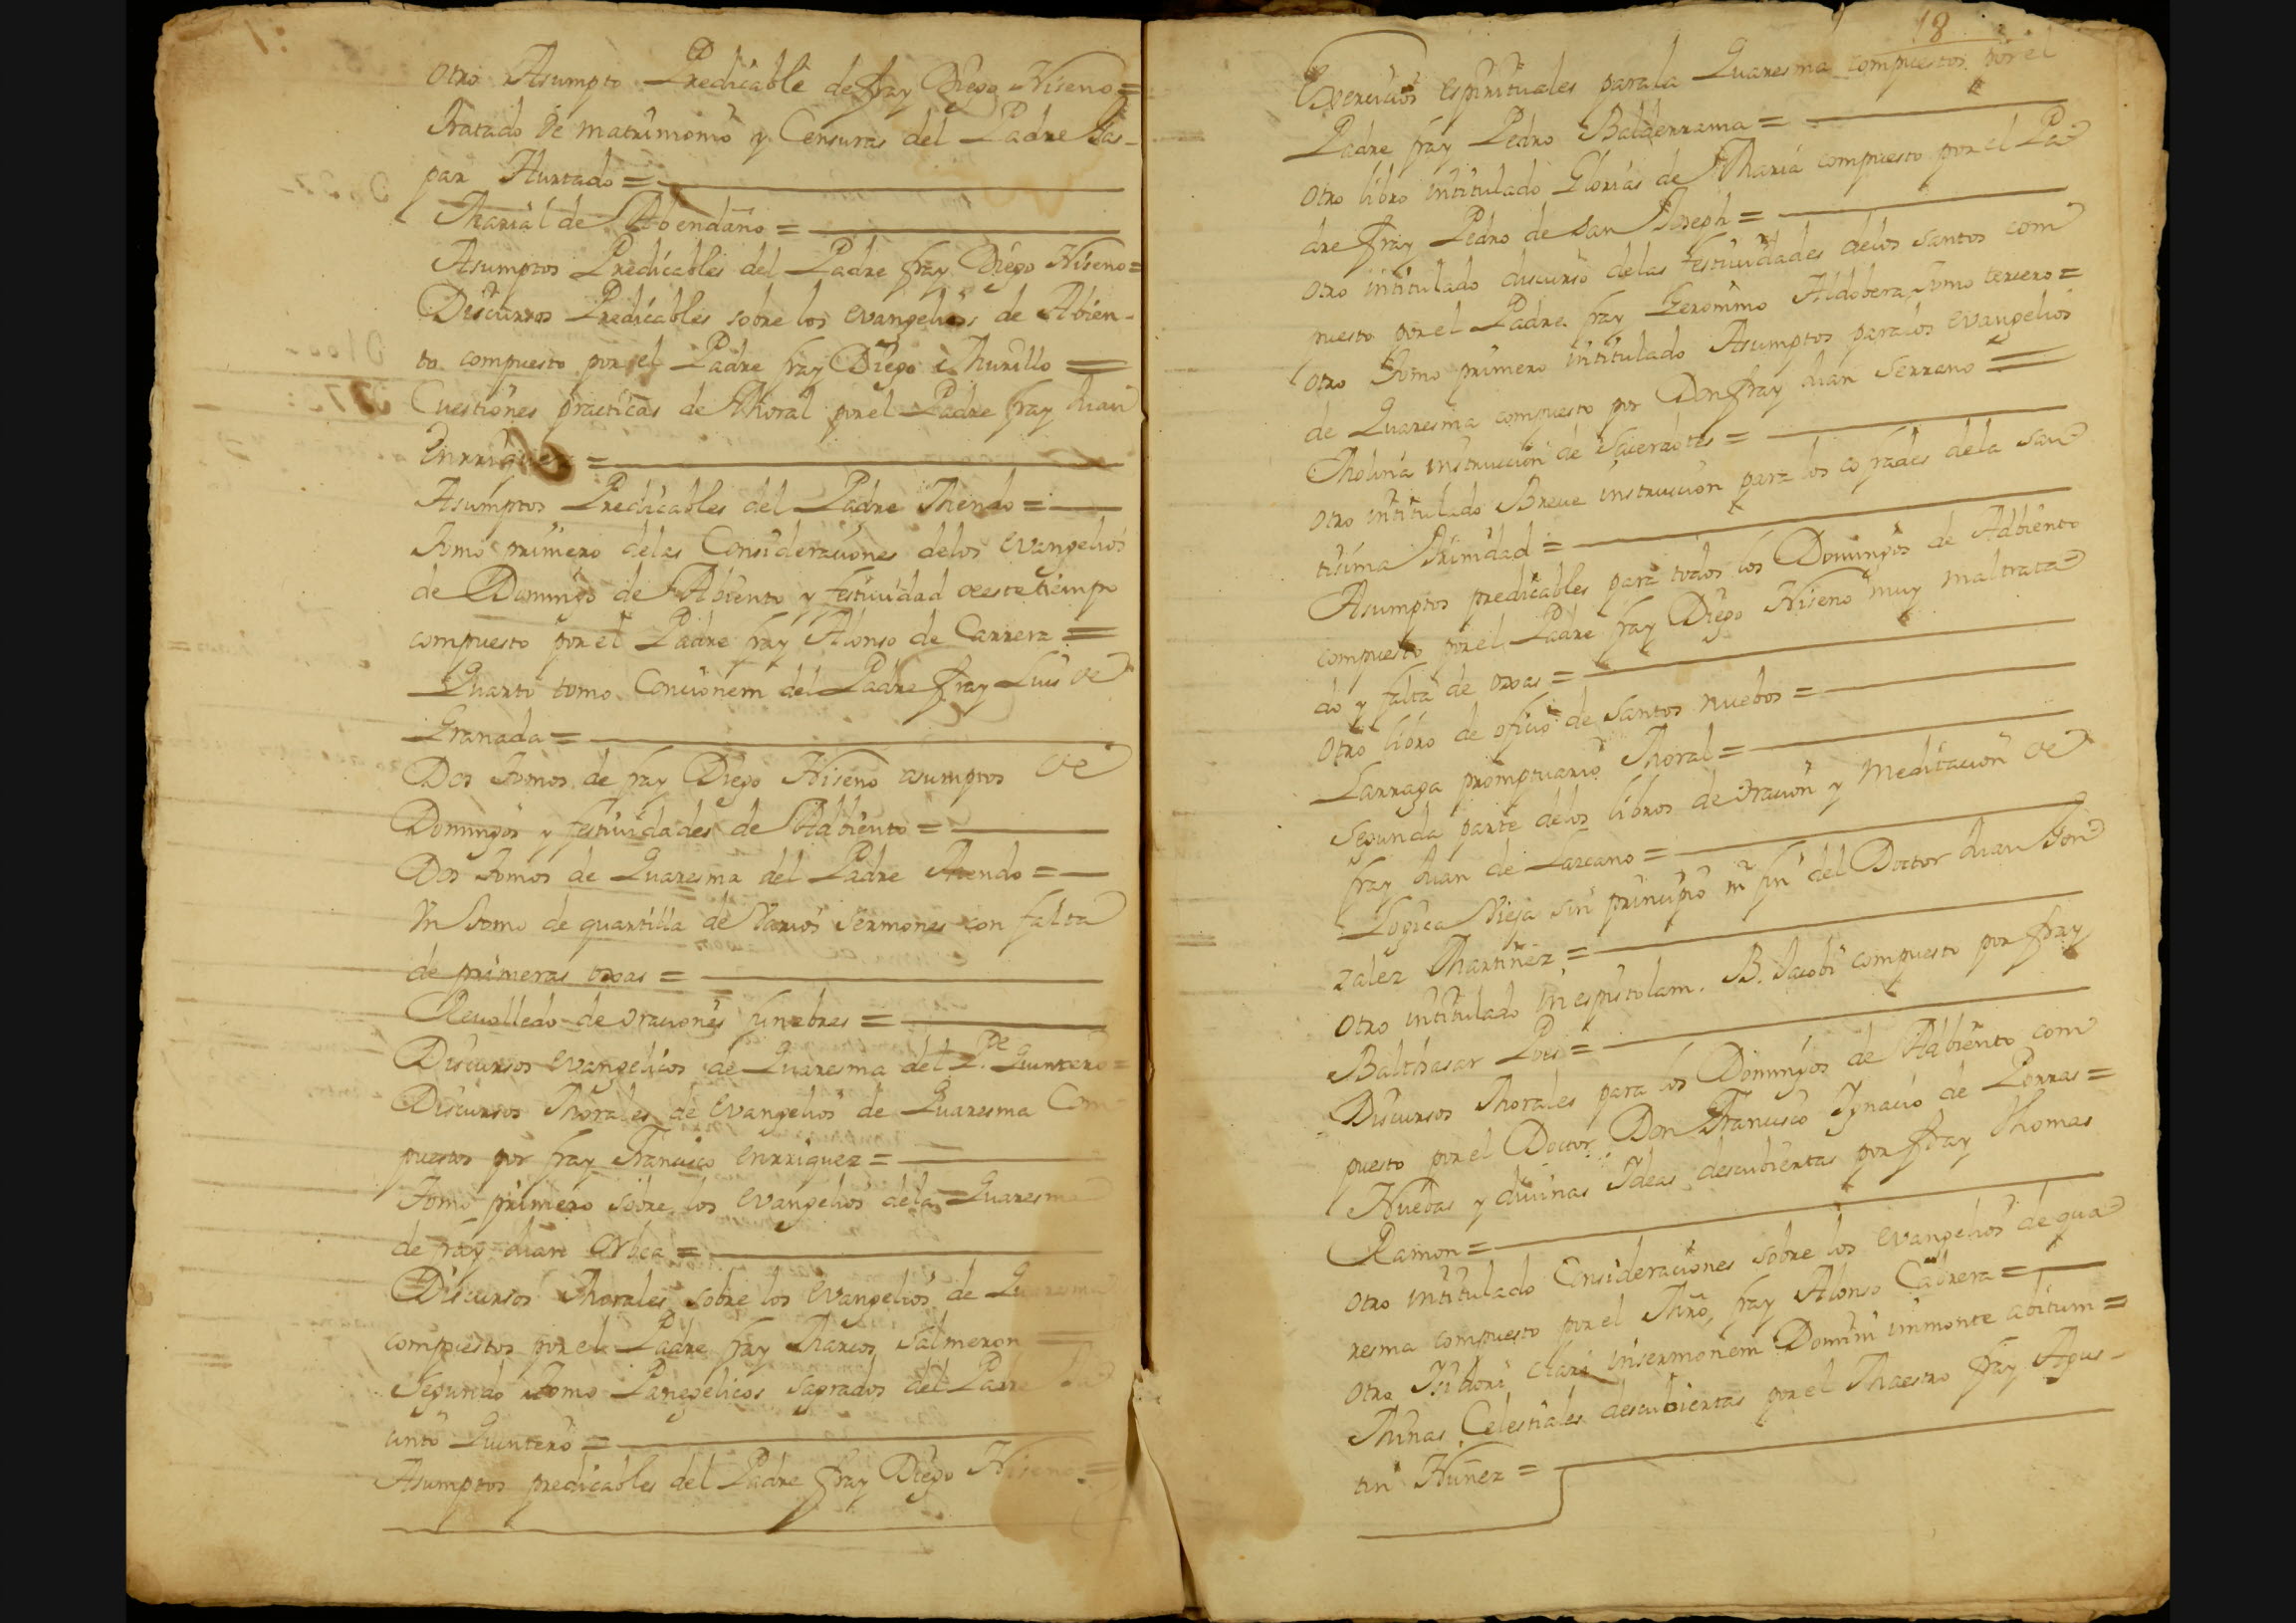 Otro Asumpto Predicable de fray Diego Niseno =
Tratado de matrimonio y Censuras del Padre Gas-
par Hurtado =
Marial de Abendaño =
Asumptos Predicables del Padre fray Diego Niseno =
Discursos Predicables sobre los evangelios de Abien-
to compuesto por el Padre fray Diego Murillo =
Cuestiones practicas de Moral por el Padre fray Juan
Enrriquez =
Asumptos Predicables del Padre Mendo =
Tomo primero delas Consideraciones delos evangelios
de Domingo de Abiento y festiuidad deeste tiempo
compuesto por el Padre fray Alonso de Carrera =
Quarto tomo Concionem del Padre fray Luis de
Granada =
Dos tomos de fray Diego Niseno asumptos de
Domingos y festiuidades de Adbiento =
Dos tomos de Quaresma del Padre Mendo =
Vn tomo de quartilla de Varios Sermones con falta
de primeras oxas =
Reuolledo de oraciones funebres =
Discursos evangelicos de Quaresma del P.de Quintero =
Discursos Morales de evangelios de Quaresma Com-
puestos por fray Francisco enrriquez =
Tomo primero sobre los evangelios dela Quaresma
de fray Juan
Discursos Morales sobre los evangelios de Quaresma
compuestos por el Padre fray Marcos Salmeron =
Segundo tomo Panegelicos sagrados del Padre Ja
cinto Quintero =
Asumptos predicables del Padre fray Diego Niseno =
18
Exercicios espirituales parala Quaresma compuestos por el
Padre fray Pedro Balderrama =
Otro libro intitulado Glorias de Maria compuesto por el Pa
dre fray Pedro de San Joseph =
Otro intitulado discurso delas festiuidades delos santos com
puesto por el Padre fray Geronimo Aldobera tomo tercero =
Otro tomo primero intitulado Asumptos paralos evangelios
de Quaresma compuesto por Don fray Juan Serrano =
Molina instruccion de Sacerdotes =
Otro intitulado Breue instruccion para los cofrades dela San
tisima Trinidad =
Asumptos predicables para todos los Domingos de Adbiento
compuesto por el Padre fray Diego Niseno muy maltrata
do y falta de oxas =
Otro libro de oficio de Santos nuebos =
Larraga promptuario Moral =
Segunda parte delos libros de oracion y Meditacion de
fray Juan de Lazcano =
Logica Vieja sin principio ni fin del Doctor Juan Gon
zalez Martinez =
Otro intitulado in espistolam. B. Jacobi compuesto por fray
Balthasar Poes =
Discursos Morales para los Domingos de Adbiento com
puesto por el Doctor Don Francisco Ygnacio de Porras =
Nuebas y diuinas Ydeas descubiertas por fray Thomas
Ramon =
Otro intitulado Consideraciones sobre los evangelios de qua
resma compuesto por el Mro, fray Alonso Cabrera =
Otro Isidori Clari insermonem Domini inmonte abitum =
Minas Celestiales descubiertas por el Maestro fray Agus-
tin Nuñez =